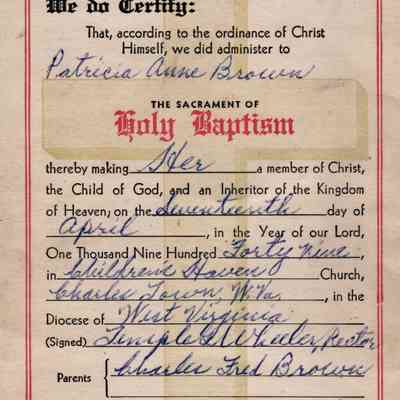 We do Certify:
That, according to the ordinance of Christ
Himself, we did administer to
Patricia Anne Brown
THE SACRAMENT OF
Holy Baptism
thereby making Her a member of Christ,
the Child of God, and an Inheritor of the Kingdom
of Heaven; on the Seventeenth day of
April, in the Year of our Lord,
One Thousand Nine Hundred Forty Nine,
in Childrens Haven Church,
Charles Town, W. Va., in the
Diocese of West Virginia
(Signed) Temple G Wheeler, Rector
Parents { Charles Fred Brown